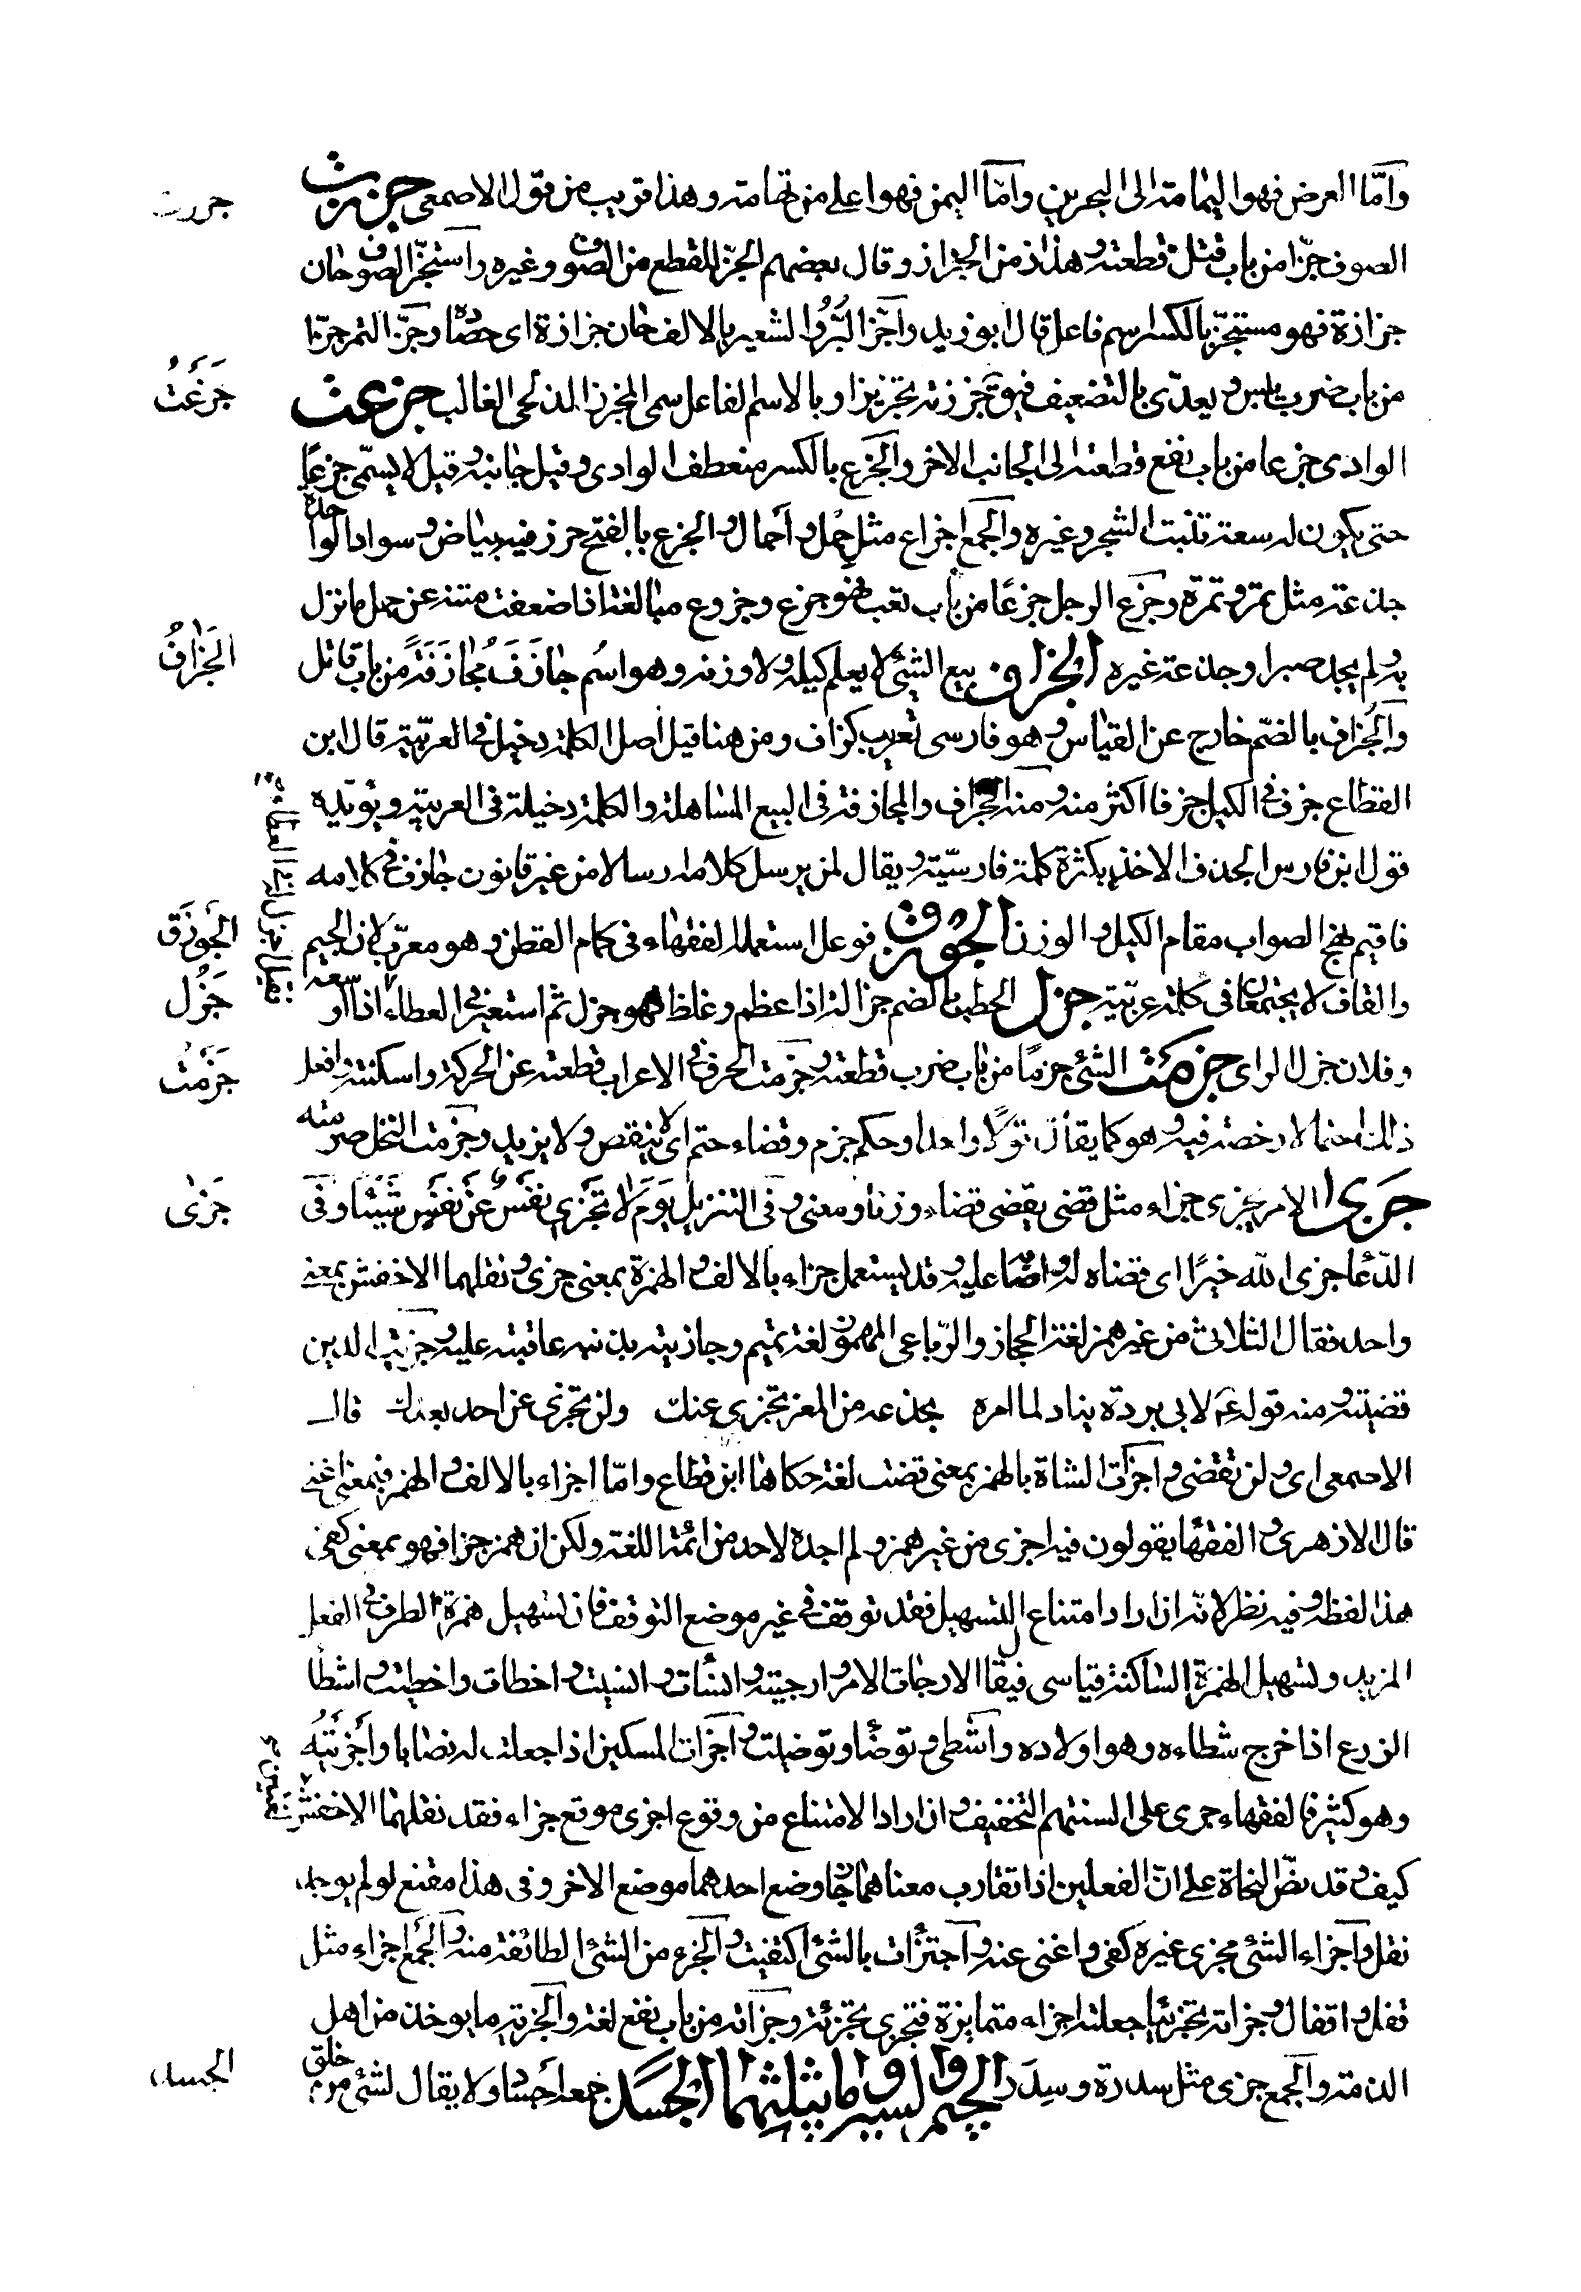 واما العرض فهو اليمامة الى البحرين واما اليمن فهو اعلى من تهامة وهذا قريب من قول الاصمعي جززت
الصوف جزا من باب قتل قطعته وهذا زمن الجزاز وقال بعضهم الجز القطع من الصوف وغيره واستجز الصوف حان
جزازة فهو مستجز بالكسر اسم فاعل قال ابو زيد واجز البُرُّ والشعير بالالف حان جزازة اى حصاده وجز التمر جزا
من باب ضرب يابس ويعدى بالتضعيف فيق جززته تجزيزا وبالاسم الفاعل سمى المجزز المدلجى الغالب جزعت
الوادى جزعا من باب نفع قطعته الى الجانب الاخر والجزع بالكسر منعطف الوادى وقيل جانبه وقيل لا يسمى جزعًا
حتى يكون له سعة تنبت الشجر وغيره والجمع اجزاع مثل حمل واحمال والجزع بالفتح خرز فيه بياض وسواد الواحدة
جذعة مثل تمر وتمرة وجزع الرجل جزعًا من باب تعب فهو جزع وجزوع مبالغة اذا ضعفت منته عن حمل ما نزل
به ولم يجد صبرا وجذعة غيره الجزاف بيع الشئ لا يعلم كيله ولا وزنه وهو اسم جازَفَ مُجازَفَةً من باب قاتل
والجُزاف بالضم خارج عن القياس وهو فارسى تعريب كزاف ومن هنا قيل اصل الكلمة دخيل فى العربية قال ابن
القطاع جزف فى الكيل جزفا اكثر منه ومنه الجزاف والمجازفة فى البيع المساهلة والكلمة دخيلة فى العربية ويؤيده
قول ابن فارس الجذف الاخذ بكثرة كلمة فارسية ويقال لمن يرسل كلامه ارسالا من غير قانون جازف فى كلامه
فاقيم نهج الصواب مقام الكيل والوزن الجوزق فوعل استعمله الفقهاء فى كمام القطن وهو معرب لان الجيم
والقاف لا يجتمعان فى كلمة عربية جزل الحطب بالضم جزالة اذا عظم وغلظ فهو جزل ثم استعير فى العطاء اذا اوسعه
وفلان جزل الراى جزمت الشئ جزمًا من باب ضرب قطعته وجزمت الحرف فى الاعراب قطعته عن الحركة واسكنته وافعل
ذلك حتما لا رخصة فيه وهو كما يقال قولًا واحدا وحكم جزم وقضاء حتم اى لا ينقص ولا يزيد وجزمت النخل صرمته
جَزى الامر يجزى جزاء مثل قضى يقضى قضاء وزنا ومعنى وفى التنزيل يَومَ لا تَجزي نَفسٌ عَن نَفسٍ شَيئا وفى
الدعا جزى الله خيرًا اى قضاه له واضا عليه وقد يستعمل جزاء بالالف والهمزة بمعنى جزى ونقلهما الاخفش بمعنى
واحد فقال الثلاثى من غير همز لغة الحجاز والرباعى المهموز لغة تميم وجازيته بذنبه عاقبته عليه وجزيت الدين
قضيته ومنه قوله عم لابى بردة بن نيار لما امره بجذعه من المعز تجزى عنك ولن تجزى عن احد بعدك قال
الاصمعى اى ولن تقضى واجزأت الشاة بالهمز بمعنى قضت لغة حكاها ابن قطاع واما اجزاء بالالف والهمز فبمعنى اغنى
قال الازهرى والفقها يقولون فيه اجزى من غير همز ولم اجده لاحد من ائمة اللغة ولكن ان همز جزا فهو بمعنى كفى
هذا لفظه وفيه نظر لانه ان اراد امتناع التسهيل فقد توقف فى غير موضع التوقف فان تسهيل همزة الطرف فى الفعل
المزيد وتسهيل الهمزة الساكنة قياسى فيقال ارجات الامر وارجيته وانسات وانسيت واخطات واخطيت واشطا
الزرع اذا خرج شطاءه وهو اولاده واشطى وتوضا وتوضيت واجزات المسكين اذا جعلت له نصابا واجزيته
وهو كثير فالفقهاء جرى على السنتهم التخفيف وان اراد الامتناع من وقوع اجزى موقع جزاء فقد نقلهما الاخفش
كيف وقد نص النحاة على ان الفعلين اذا تقارب معناهما جاز وضع احدهما موضع الاخر وفى هذا مقنع لو لم يوجد
نقل واجزاء الشئ مجزى غيره كفى واغنى عنه واجتزات بالشئ اكتفيت والجزء من الشئ الطائفة منه والجمع اجزاء مثل
قفل واقفال وجزاته تجزئيا جعلته اجزاء متمايزة فتجزى تجزئة وجزاته من باب نفع لغة والجزية ما يوخذ من اهل
الذمة والجمع جزى مثل سدرة وسِدَر الجيم والسين وما يثلثهما الجسد جمعه اجساد ولا يقال لشئ من خلق
جززت
جَزَعْتُ
الجَزافُ
الجَوزَق
جَزُل
جَزَمْتُ
جَزى
الجسد